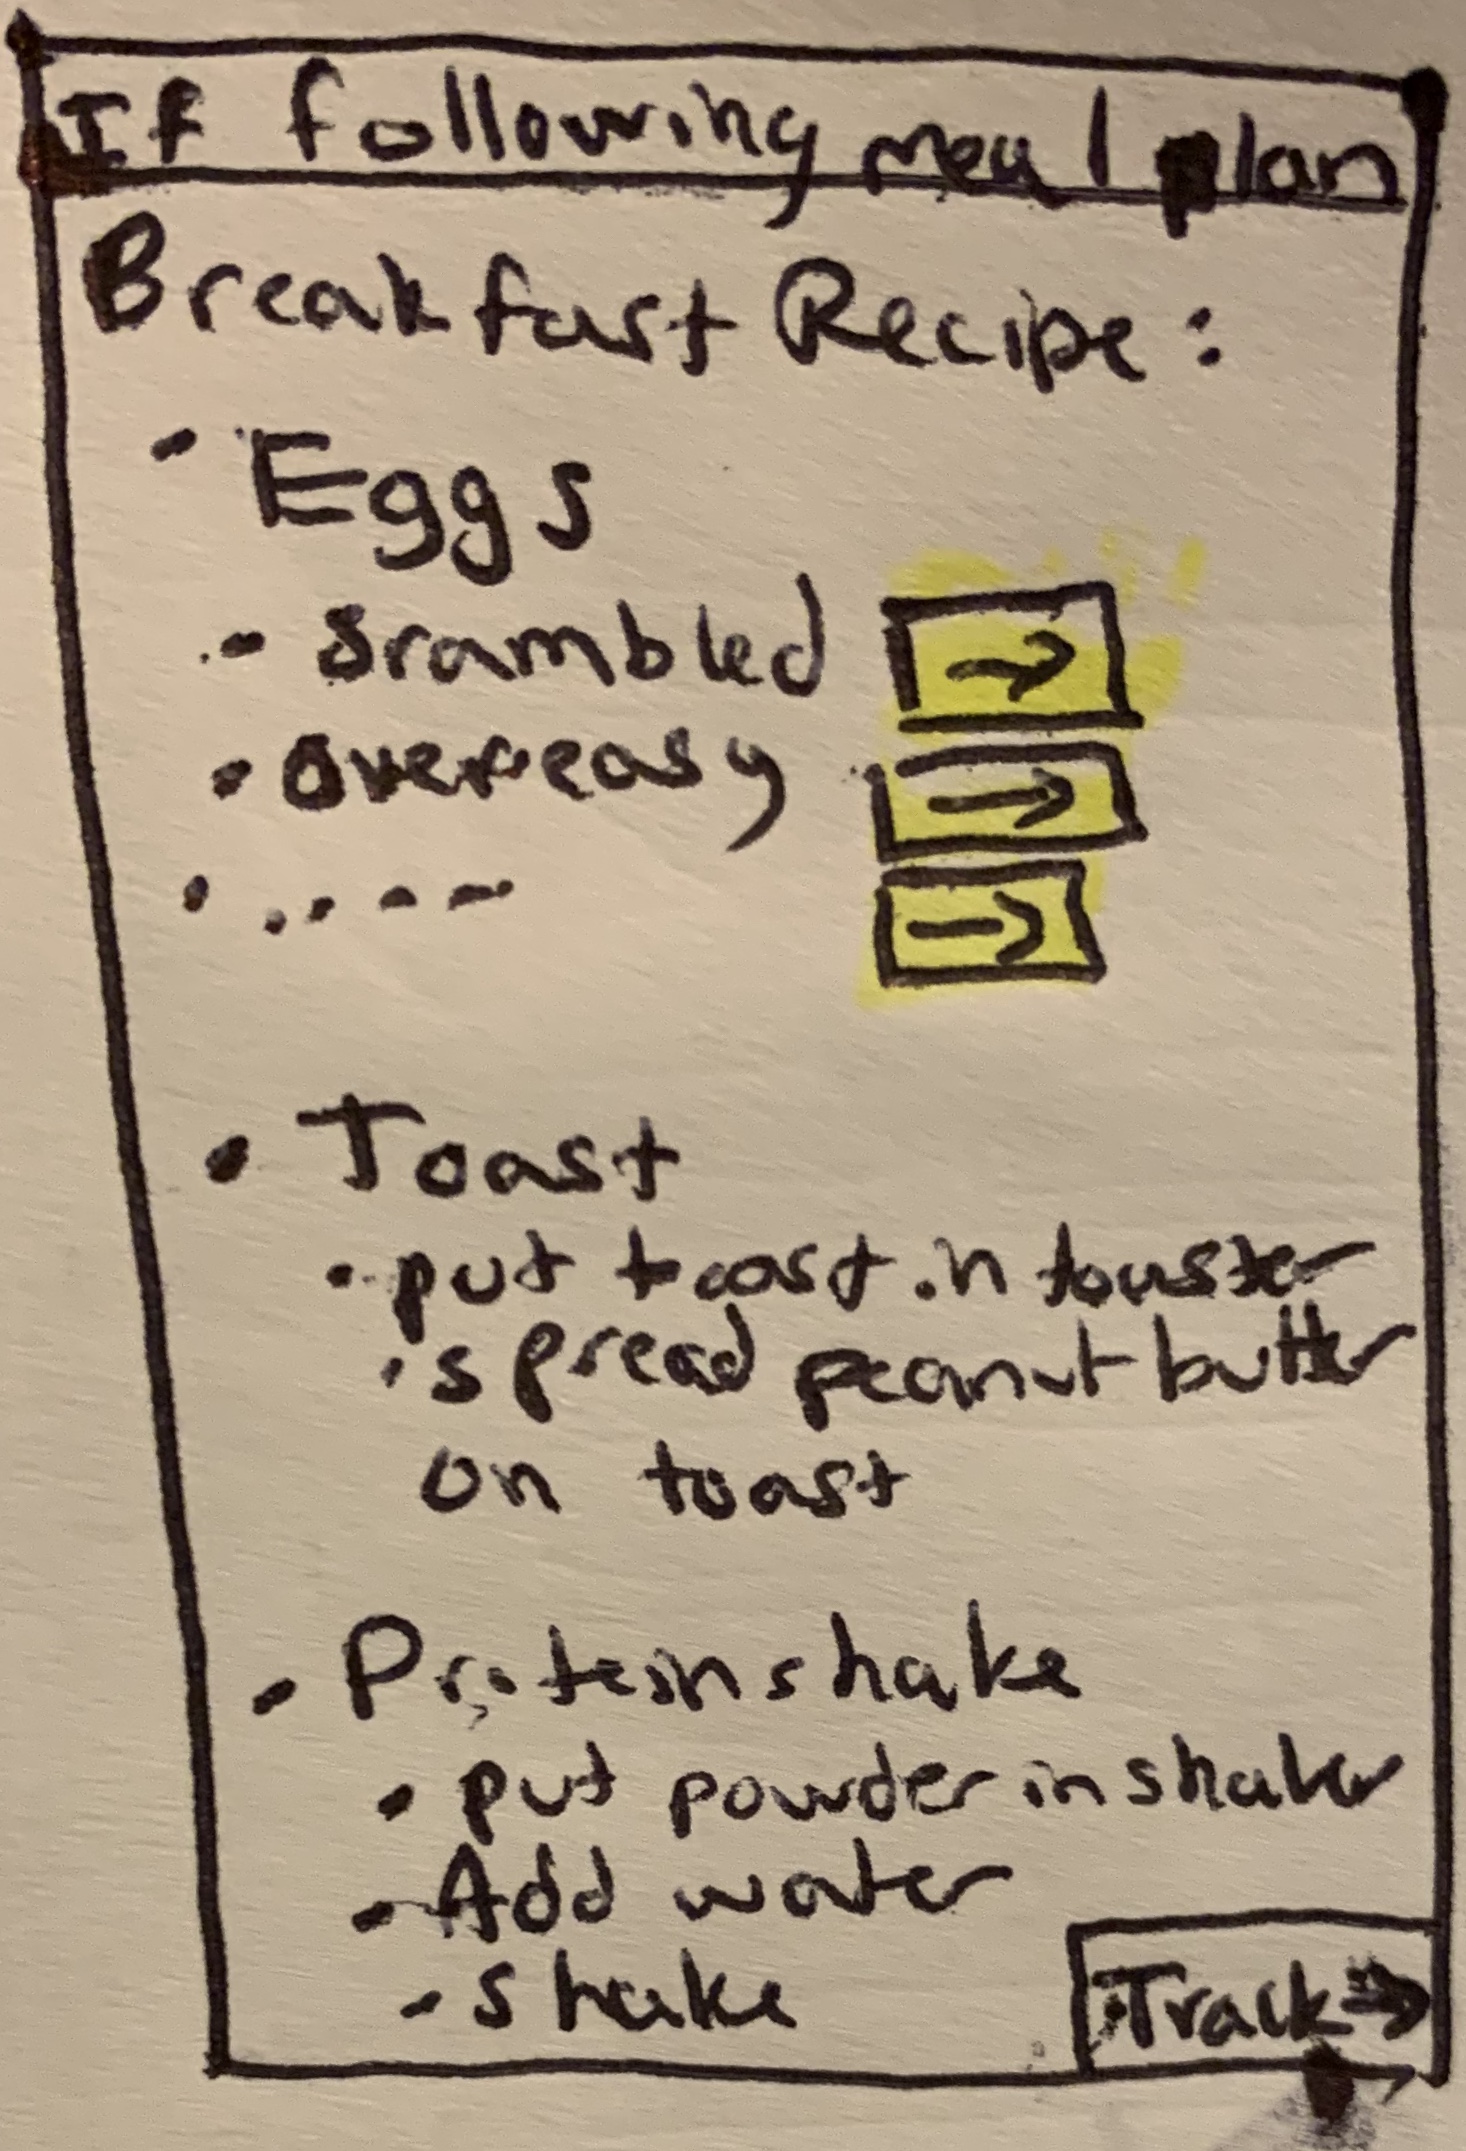 If following meal plan
Breakfast Recipe:
• Eggs
- Srambled →
• overeasy →
• . . - - →
• Toast
• put toast in toaster
• spread peanut butter
on toast
• Protein shake
• put powder in shaker
• Add water
- shake
Track →